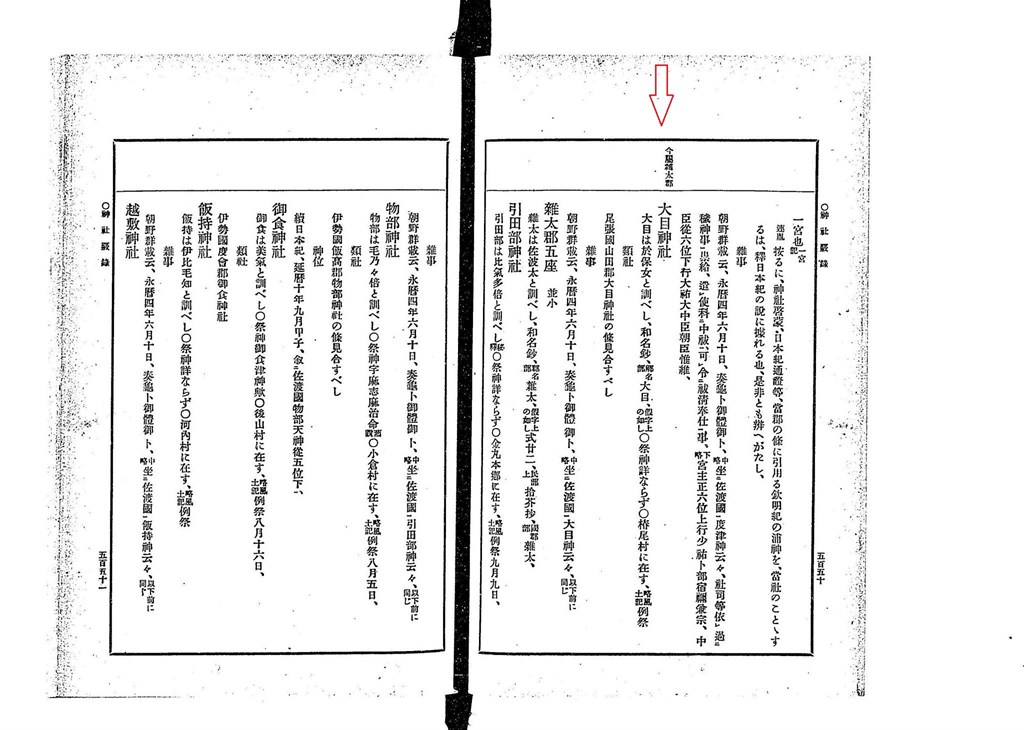 ○神社覈録
五百五十
一宮也一宮記
連胤按るに、神社啓蒙、日本紀通證等、當郡の條に引用る欽明紀の浦神を、當社のことゝす
るは、釋日本紀の說に據れる也、是非とも辨へがたし、
雜事
朝野群載云、永曆四年六月十日、奏龜卜御體御卜、中略坐佐渡國度津神云々、社司等依過
穢神事祟給、遣使科中祓可令祓淸奉仕事、下略宮主正六位上行少祐卜部宿禰兼宗、中
臣從六位下行大祐大中臣朝臣惟維、
今屬雜太郡
大目神社
大目は於保女と訓べし、和名鈔、郷名部大目、假字上の如し○祭神詳ならず○椿尾村に在す、略風土記例祭
類社
尾張國山田郡大目神社の條見合すべし
雜事
朝野群載云、永曆四年六月十日、奏龜卜御體御卜、中略坐佐渡國大目神云々、以下前に同じ
雜太郡五座 並小
雜太は佐波太と訓べし、和名鈔、郡名部雜太、假字上の如し式廿二、民部上拾芥抄、國郡部雜太、
引田部神社
引田部は比氣多倍と訓べし○祭神詳ならず○金丸本鄕に在す、略風土記例祭九月九日、
雜事
朝野群載云、永曆四年六月十日、奏龜卜御體御卜、中略坐佐渡國引田部神云々、以下前に同じ
物部神社
物部は毛乃々倍と訓べし○祭神宇麻志麻治命○小倉村に在す、略風土記例祭八月五日、
類社
伊勢國飯高郡物部神社の條見合すべし
神位
續日本紀、延曆十年九月甲子、叙佐渡國物部天神從五位下、
御食神社
御食は美氣と訓べし○祭神御食津神歟○後山村に在す、略風土記例祭八月十六日、
類社
伊勢國度會郡御食神社
飯持神社
飯持は伊比毛知と訓べし○祭神詳ならず○河內村に在す、略風土記例祭
雜事
朝野群載云、永曆四年六月十日、奏龜卜御體御卜、中略坐佐渡國飯持神云々、以下前に同じ
越敷神社
○神社覈録
五百五十一